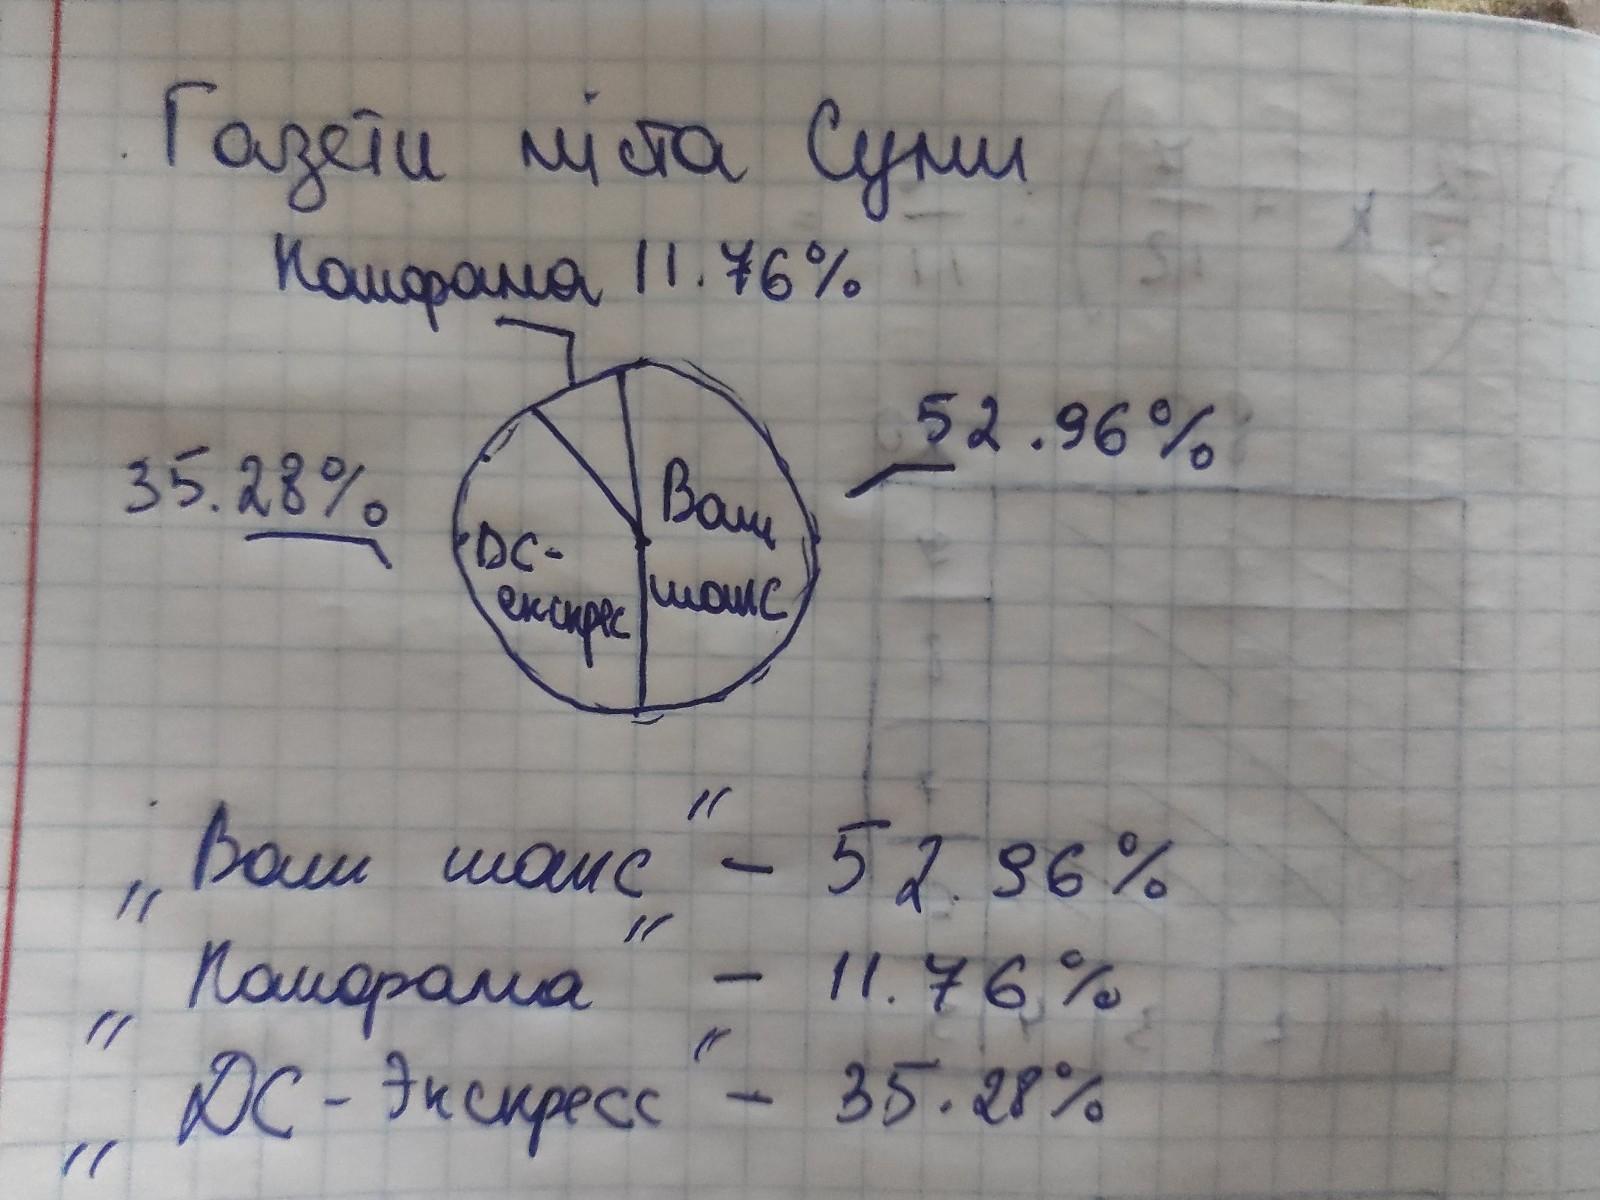 Газети міста Суми
Панорама 11.76%
52.96%
35.28%
Ваш
шанс
DC-
експрес
„Ваш шанс" - 52.96%
„Панорама" - 11.76%
„DC-Экспресс" - 35.28%